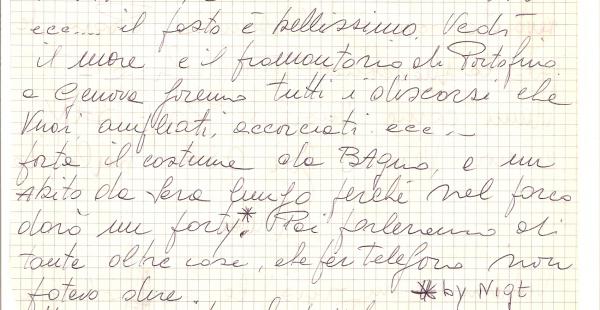 ecc.... il posto è bellissimo. Vedi
il mare e il promontorio di Portofino
a Genova faremo tutti i discorsi che
Vuoi, ampliati, accorciati ecc...
porta il costume da BAgno, e un
Abito da sera lungo perché nel parco
darò un party* Poi parleremo di
tante altre cose, che per telefono non
potevo dire.
* by Night